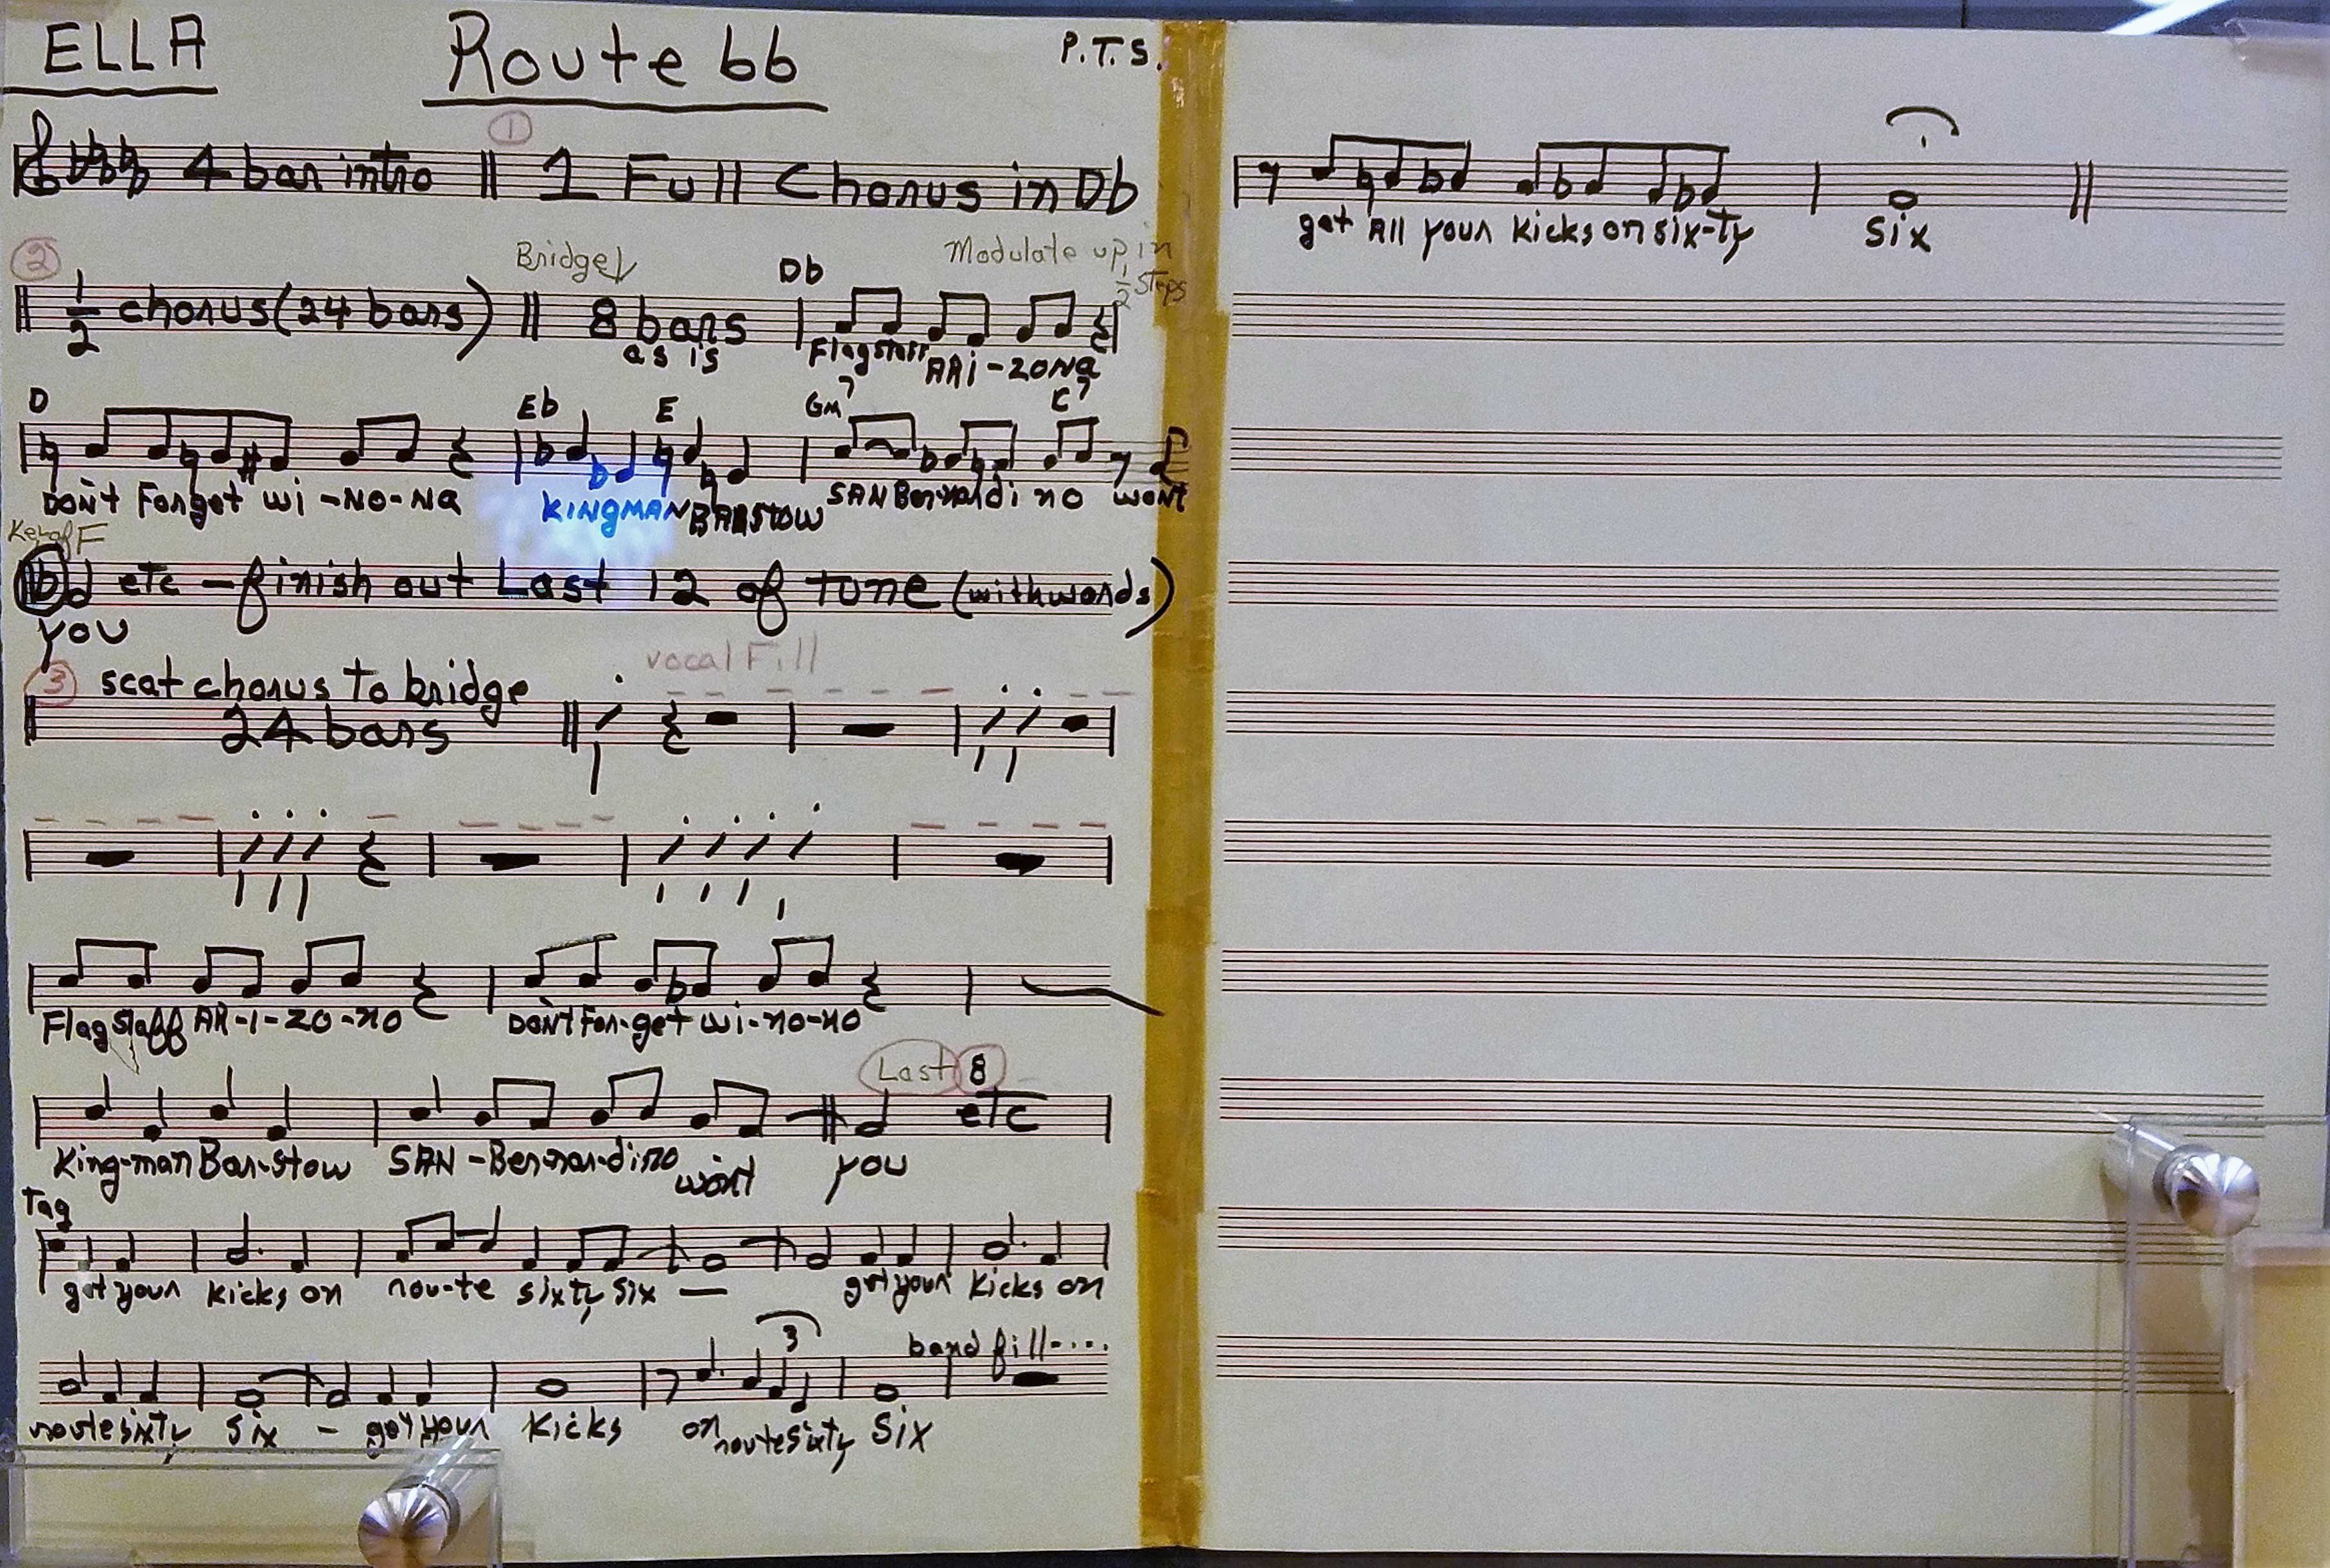 ELLA Route 66 P.T.S.
①
4 bar intro 1 Full Chorus in Db
② Bridge Db Modulate up in 1/2 steps
1/2 chorus (24 bars) 8 bars
as is Flagstaff ARi-zona
D Eb E Gm7 C7
Don't Forget wi-NO-Na KINgMAN BARstow SAN Bernardi no wont
Key of F
etc - finish out Last 12 of tune (with words)
you
vocal Fill
③ scat chorus to bridge
24 bars
Flagstaff AR-i-zo-no Don't For-get wi-no-no
Last 8
etc
King-man Bar-stow SAN-Ber-nar-dino won't you
Tag
get your kicks on rou-te sixty six — get your kicks on
3 band fill....
route sixty six - get your kicks on route sixty six
get All your kicks on six-ty six